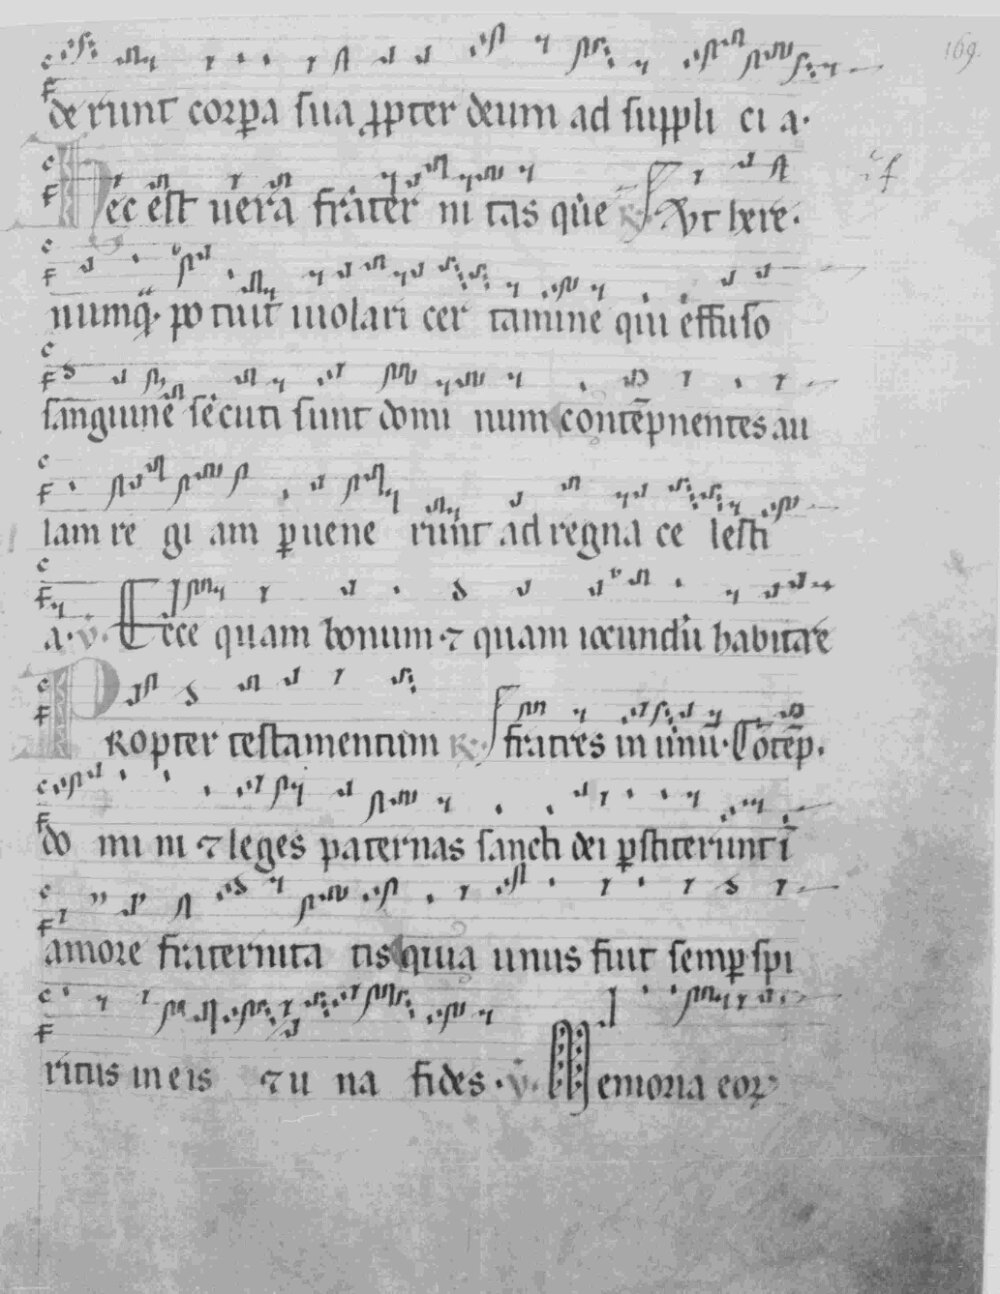 169.
derunt corpa sua ꝓpter deum ad suppli ci a.
Hec est uera frater ni tas que ℟. Vt here.
numq̃. po tuit uiolari cer tamine qui effuso
sanguine secuti sunt domi num contēpnentes au
lam re gi am ꝑuene runt ad regna ce lesti
a. ℣. Ecce quam bonum ⁊ quam iocundū habitare
PRopter testamentum ℟. fratres in unū. Cōtēp.
do mi ni ⁊ leges paternas sancti dei ꝑstiterunt ī
amore fraternita tis quia unus fuit semꝑ spi
ritus in eis ⁊ u na fides. ℣. Memoria eoꝝ